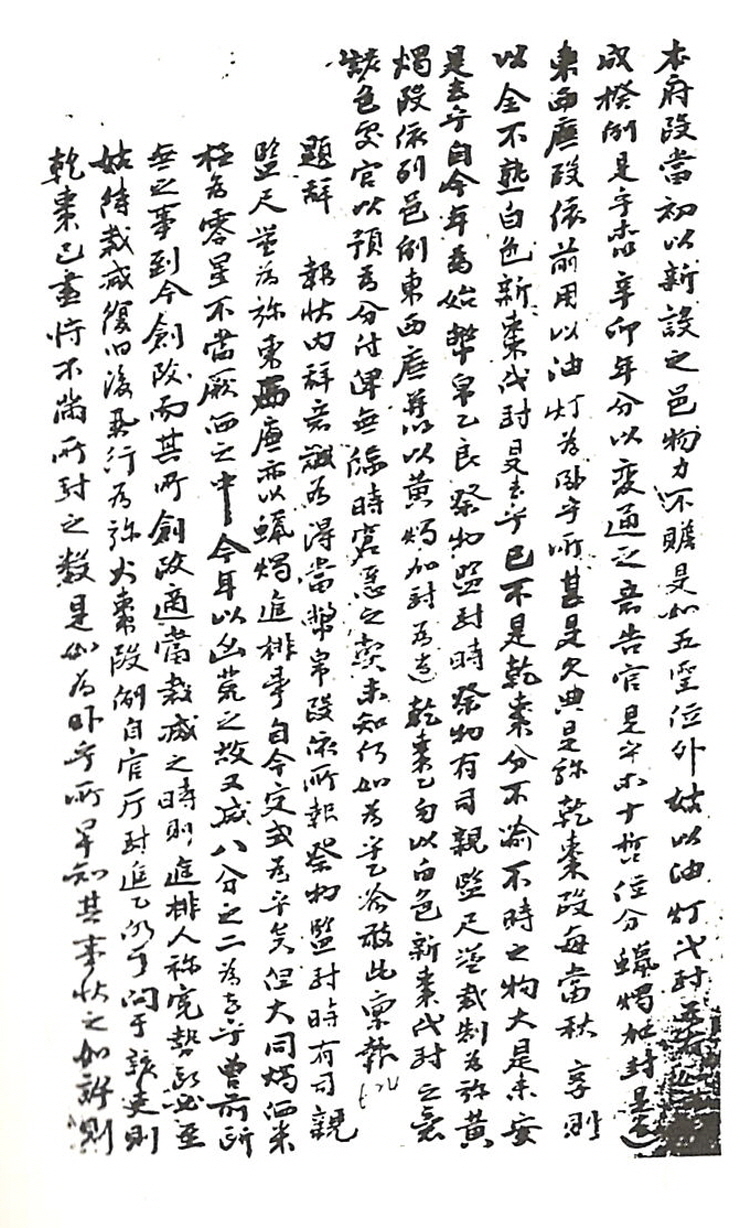 本府段當初以新設之邑物力不贍是如五聖位外姑以油灯代封
成㨾例是乎加辛卯年分以変通之意告官是乎尔十哲位分蠟燭加封是遣
東西廡段依前用以油灯爲卧乎所甚是欠典是旀乾棗段每當秋享則
以全不熟白色新棗代封是去乎已不是乾棗分不喩不時之物大是未安
是去乎自今年爲始幣帛乙良祭物監封時祭物有司親監尺量裁制爲旀黃
燭段依列邑例東西廡并以黃燭加封爲遣乾棗乙勿以白色新棗代封之意
該色処官以預爲分付俾無臨時窘急之獘未知何如爲乎乙喩敢此稟報
題辭 報狀內辞意誠爲得當幣帛段依所報祭物監封時有司親
監尺量爲旀東西廡亦以蠟燭進排事自今定式爲乎矣但大同燭洒来
極爲零星不當厥洒之中今年以凶荒之故又减八分之二爲去乎曽前所
無之事到今創改而其所創改適當裁减之時則進排人称寃勢所必至
姑待裁减復旧後擧行爲旀大棗段例自官厅封進乙仍于问于該吏則
乾棗已盡恃不滿所封之数是如爲卧乎所早知其事状之如許則